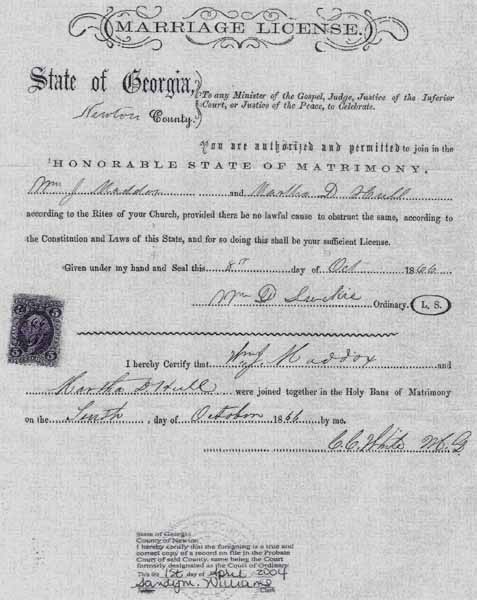 MARRIAGE LICENSE.
State of Georgia,
Newton County.
To any Minister of the Gospel, Judge, Justice of the Inferior
Court, or Justice of the Peace, to Celebrate.
You are authorized and permitted to join in the
HONORABLE STATE OF MATRIMONY,
Wm J Maddox and Martha D Hull
according to the Rites of your Church, provided there be no lawful cause to obstruct the same, according to the
Constitution and Laws of this State, and for so doing this shall be your sufficient License.
Given under my hand and Seal this 8th day of Oct 1866
Wm D Luckie Ordinary. L. S.
I hereby Certify that Wm J. Maddox and
Martha D Hull were joined together in the Holy Bans of Matrimony
on the Tenth, day of October 1866 by me.
C. C. White M. G
5 5
State of Georgia
County of Newton
I hereby certify that the foregoing is a true and
correct copy of a record on file in the Probate
Court of said County, same being the Court
formerly designated as the Court of Ordinary.
This the 1st day of April 2004
Sandyne Williams
Clerk